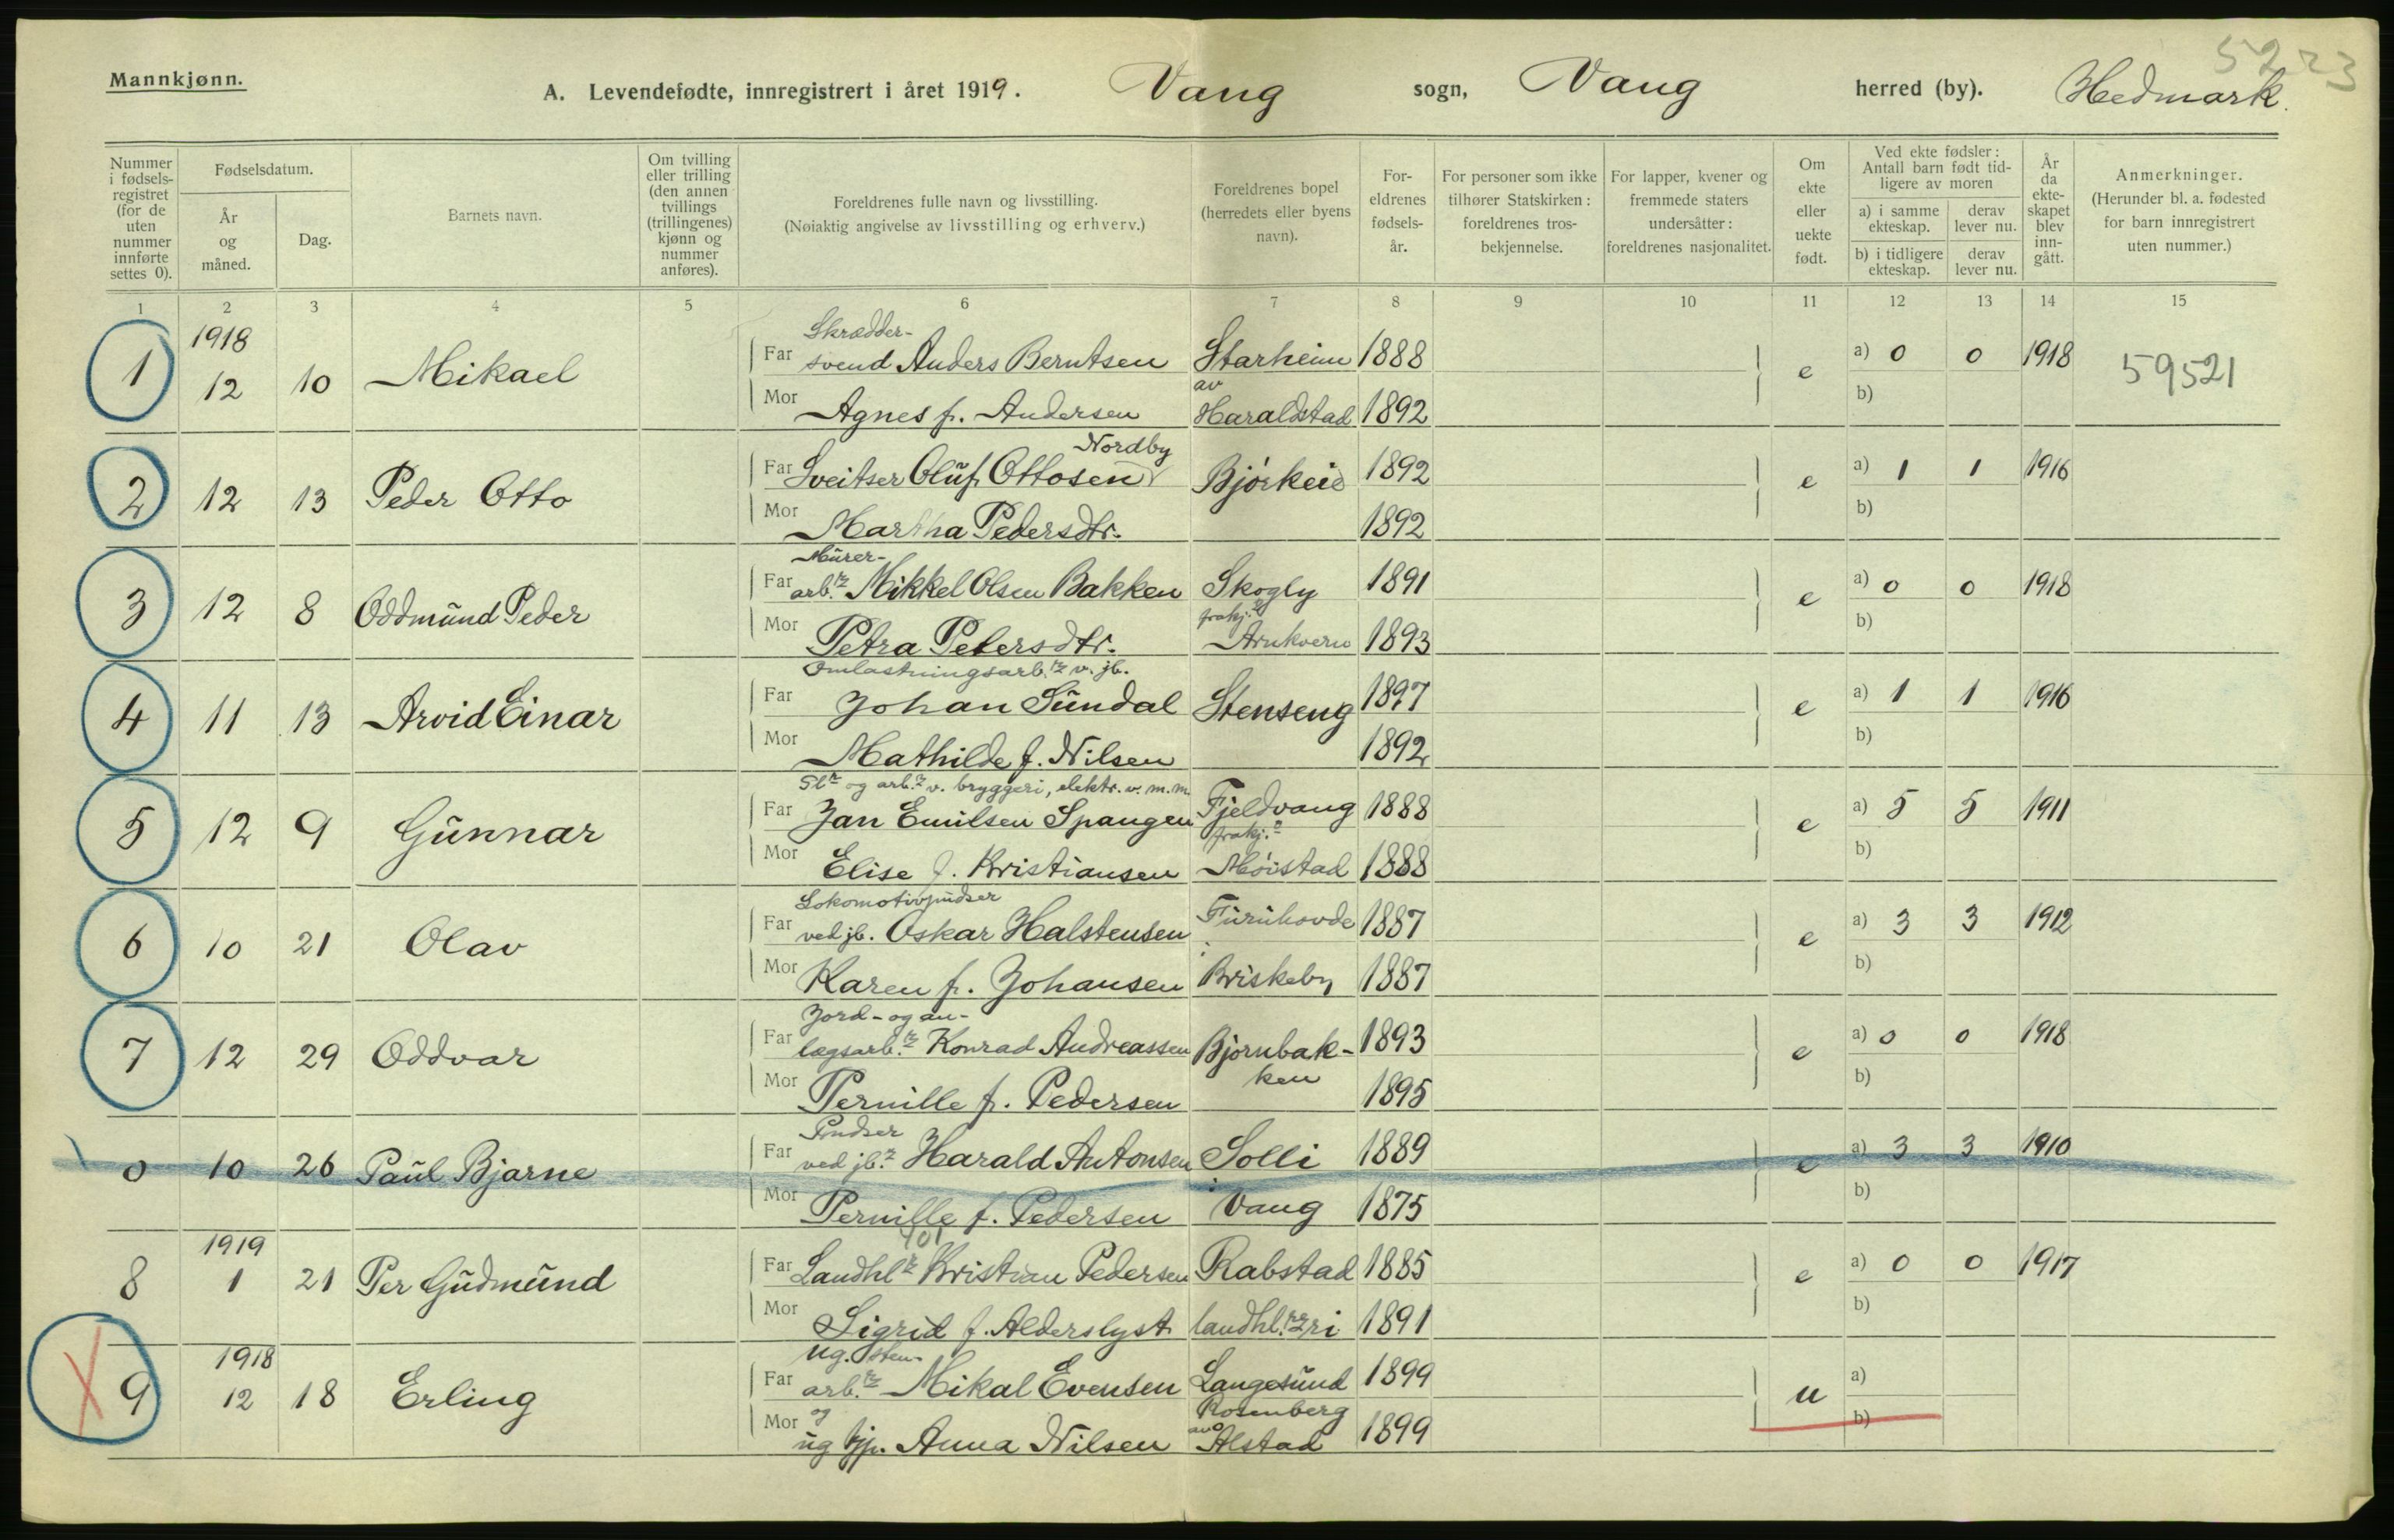 5223
Mannkjønn.
A. Levendefødte, innregistrert i året 1919. Vang sogn, Vang herred (by). Hedmark.
Nummer i fødsels-registret (for de uten nummer innførte settes 0).
Fødselsdatum.
År og måned.
Dag.
Barnets navn.
Om tvilling eller trilling (den annen tvillings (trillingenes) kjønn og nummer anføres).
Foreldrenes fulle navn og livsstilling.
(Nøiaktig angivelse av livsstilling og erhverv.)
Foreldrenes bopel (herredets eller byens navn).
For-eldrenes fødsels-år.
For personer som ikke tilhører Statskirken: foreldrenes tros-bekjennelse.
For lapper, kvener og fremmede staters undersåtter: foreldrenes nasjonalitet.
Om ekte eller uekte født.
Ved ekte fødsler: Antall barn født tid-ligere av moren
a) i samme ekteskap. derav lever nu.
b) i tidligere ekteskap. derav lever nu.
År da ekte-skapet blev inn-gått.
Anmerkninger.
(Herunder bl. a. fødested for barn innregistrert uten nummer.)
1 2 3 4 5 6 7 8 9 10 11 12 13 14 15
1918
Skrædder-
1 12 10 Mikael Far svend Anders Berntsen Starheim 1888 e a) 0 0 1918 59521
Mor Agnes f. Andersen av Haraldstad 1892 b)
Nordby
2 12 13 Peder Otto Far Sveitser Oluf Ottosen Bjørkeie 1892 e a) 1 1 1916
Mor Martha Pedersdtr. 1892 b)
Murer-
3 12 8 Oddmund Peder Far arb.r Mikkel Olsen Bakken Skogly 1891 e a) 0 0 1918
Mor Petra Petersdtr. Arnkvern 1893 b)
Omlastningsarb.r v. jb.
4 11 13 Arvid Einar Far Johan Sundal Stenseng 1897 e a) 1 1 1916
Mor Mathilde f. Nilsen 1892 b)
og arb.r v. bryggeri, elektr. v. m.m.
5 12 9 Gunnar Far Jan Emilsen Spangen Fjeldvang 1888 e a) 5 5 1911
Mor Elise f. Kristiansen Møistad 1888 b)
Lokomotivpudser
6 10 21 Olav Far ved jb. Oskar Halstensen Furuhovde 1887 e a) 3 3 1912
Mor Karen f. Johansen Briskeby 1887 b)
Jord- og an-
7 12 29 Oddvar Far lægsarb.r Konrad Andreassen Bjørnbak- 1893 e a) 0 0 1918
Mor Pernille f. Pedersen ken 1895 b)
Pudser
0 10 26 Paul Bjarne Far ved jb. Harald Antonsen Solli 1889 e a) 3 3 1910
Mor Pernille f. Pedersen i Vang 1875 b)
1919 401
8 1 21 Per Gudmund Far Landhl.r Kristian Pedersen Rabstad 1885 e a) 0 0 1917
Mor Sigrid f. Alderslyst landhl.ri 1891 b)
1918 ug. sten-
9 12 18 Erling Far arb.r Mikal Evensen Langesund 1899 u a)
Rosenberg
Mor og ug tjp. Anna Nilsen av Alstad 1899 b)